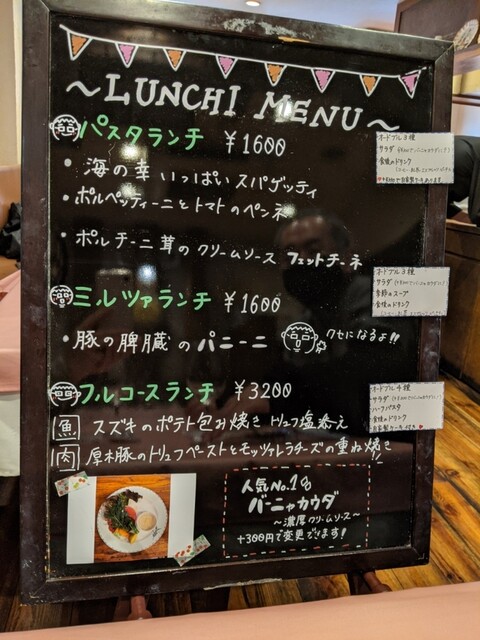 ～LUNCHI MENU～
パスタランチ ￥1600
・海の幸いっぱいスパゲッティ
・ポルペッティーニとトマトのペンネ
・ポルチーニ茸のクリームソース フェットチーネ
オードブル3種
サラダ
食後のドリンク
ミルツァランチ ￥1600
・豚の脾臓のパニーニ
クセになるよ!!
オードブル3種
サラダ
季節のスープ
食後のドリンク
フルコースランチ ￥3200
魚 スズキのポテト包み焼き トリュフ塩添え
肉 厚木豚のトリュフペーストとモッツァレラチーズの重ね焼き
オードブル4種
サラダ
ハーフパスタ
食後のドリンク
自家製ケーキ付き
人気No.1
バーニャカウダ
～濃厚クリームソース～
+300円で変更できます!!